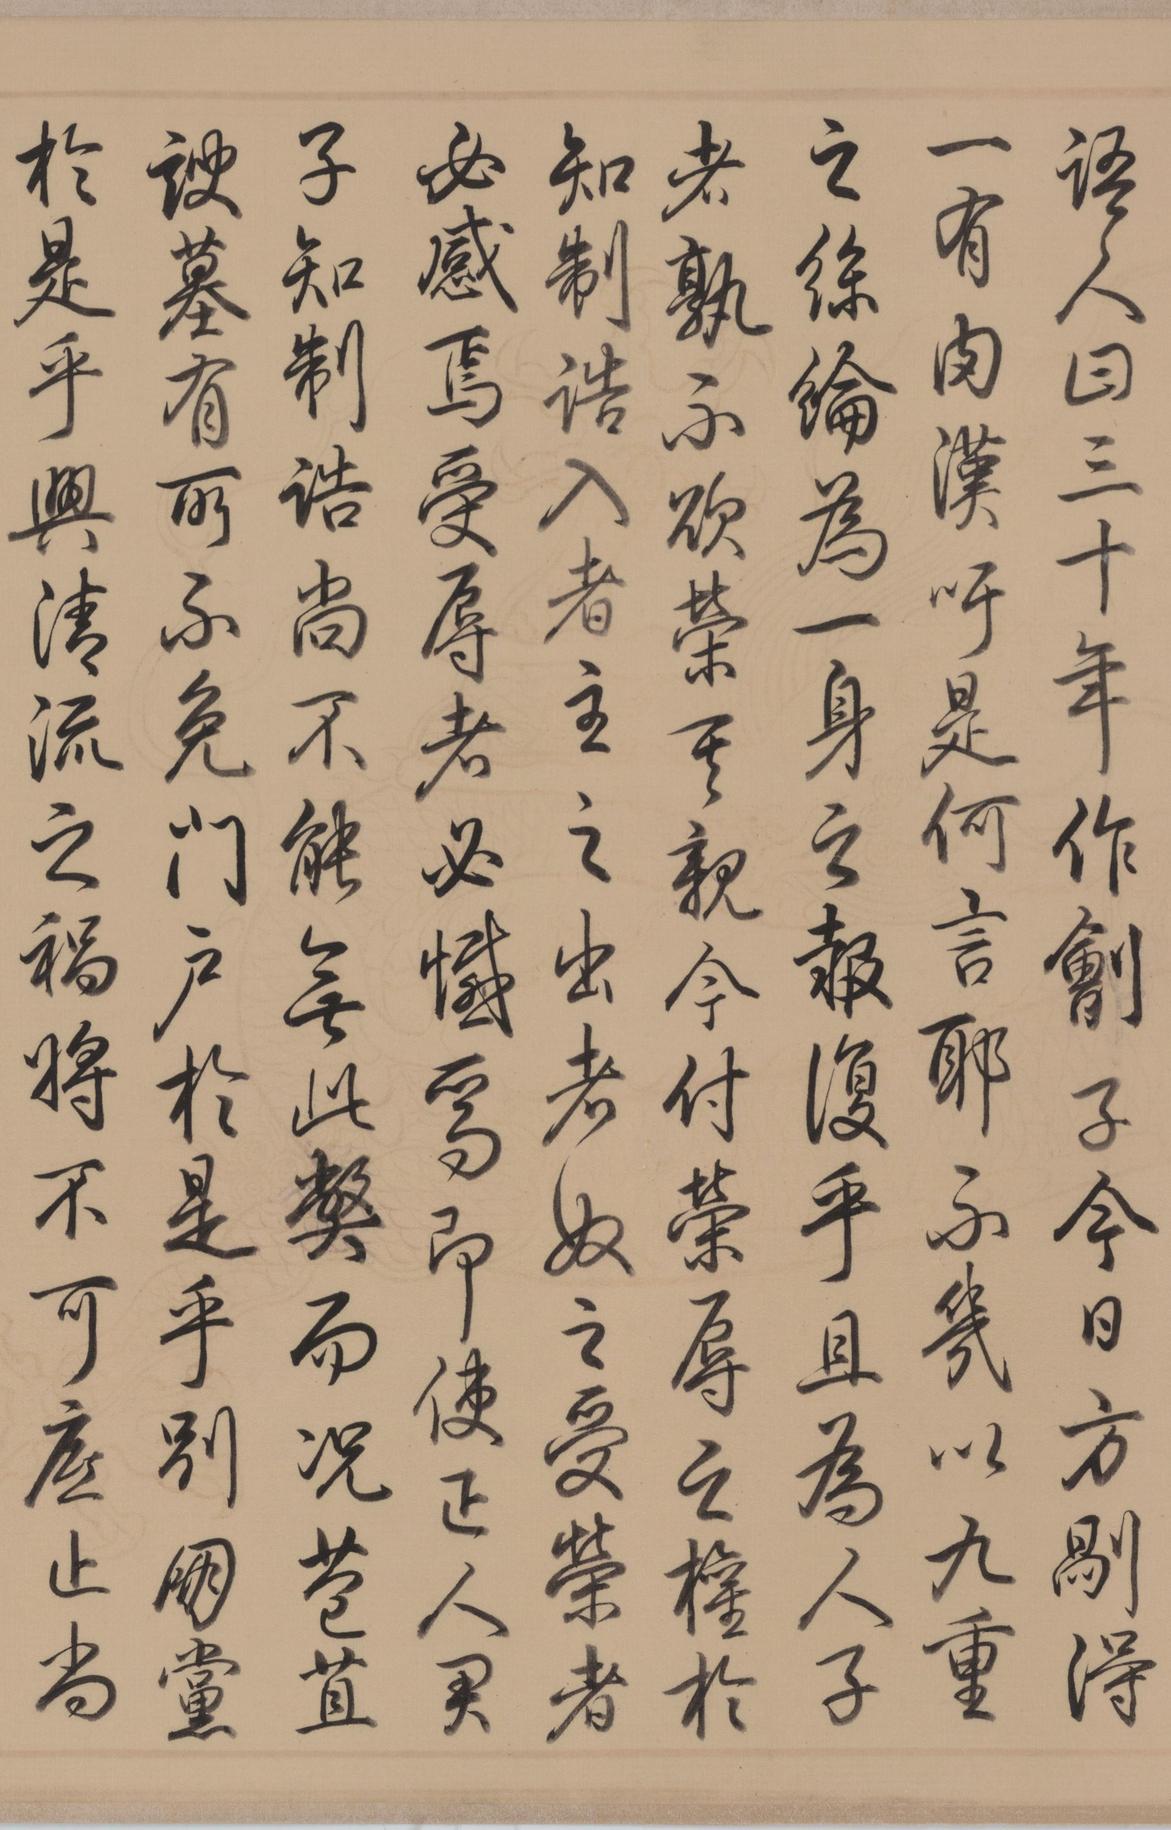 語人曰三十年作劊子今日方剮得
一有肉漢吁是何言耶不幾以九重
之絲綸為一身之報復乎且為人子
者孰不欲榮其親今付榮辱之權於
知制誥入者主之出者奴之受榮者
必感焉受辱者必憾焉即使正人君
子知制誥尚不能無此弊而況苞苴
諛墓有所不免門戶於是乎別朋黨
於是乎興清流之禍將不可底止尚